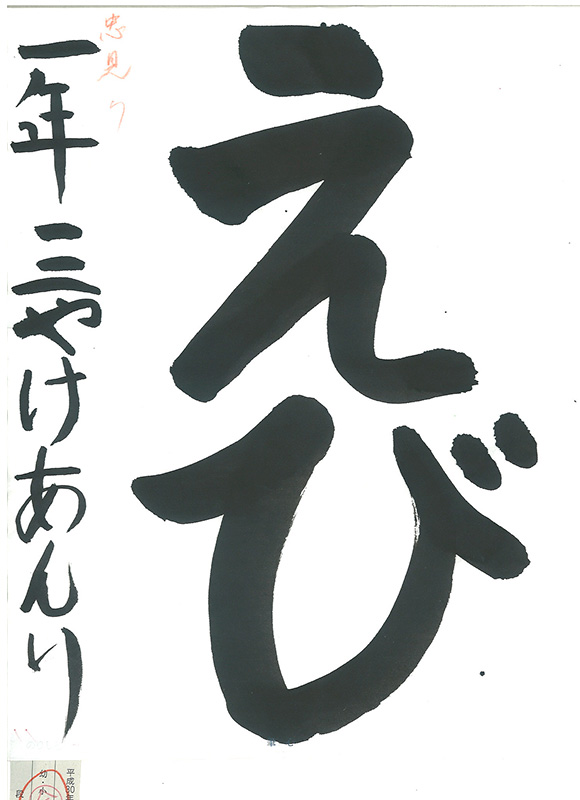 えび
忠見り
一年 三やけあんり
平成30年
幼・小
段